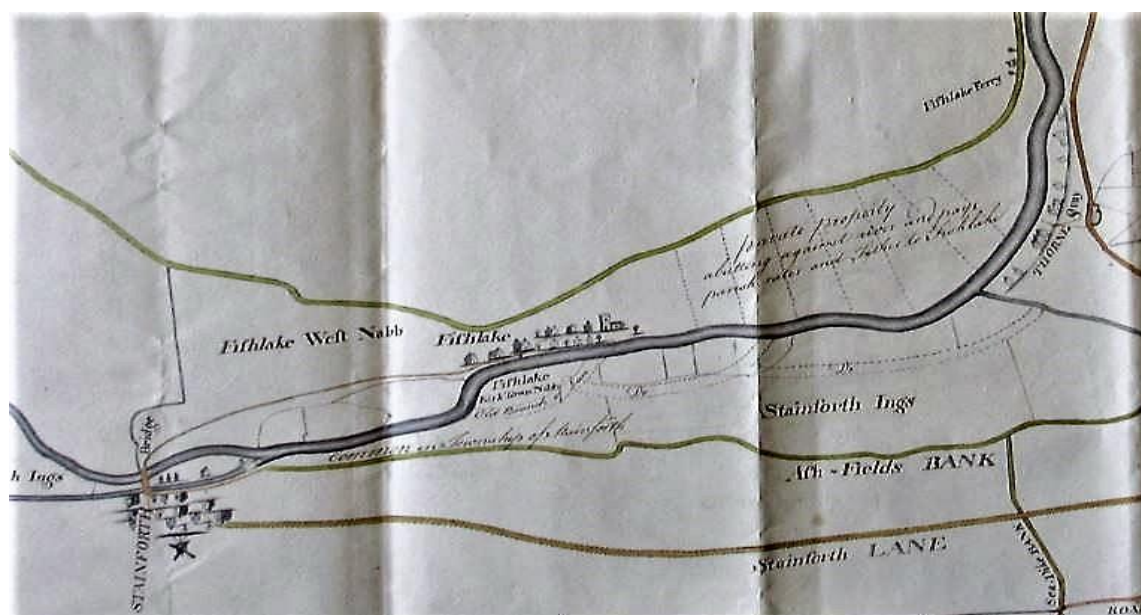 Fifhlake Ferry
private property
abutting against river and pays
parish rates and Tithes to Fishlake
THORNE Quay
Fifhlake Weft Nabb
Fifhlake
Fifhlake
Old
Do
Do
Stainforth Ings
Common in Township of Stainforth
Bridge
h Ings
Afh-Fields BANK
STAINFORTH
Stainforth LANE
BANK